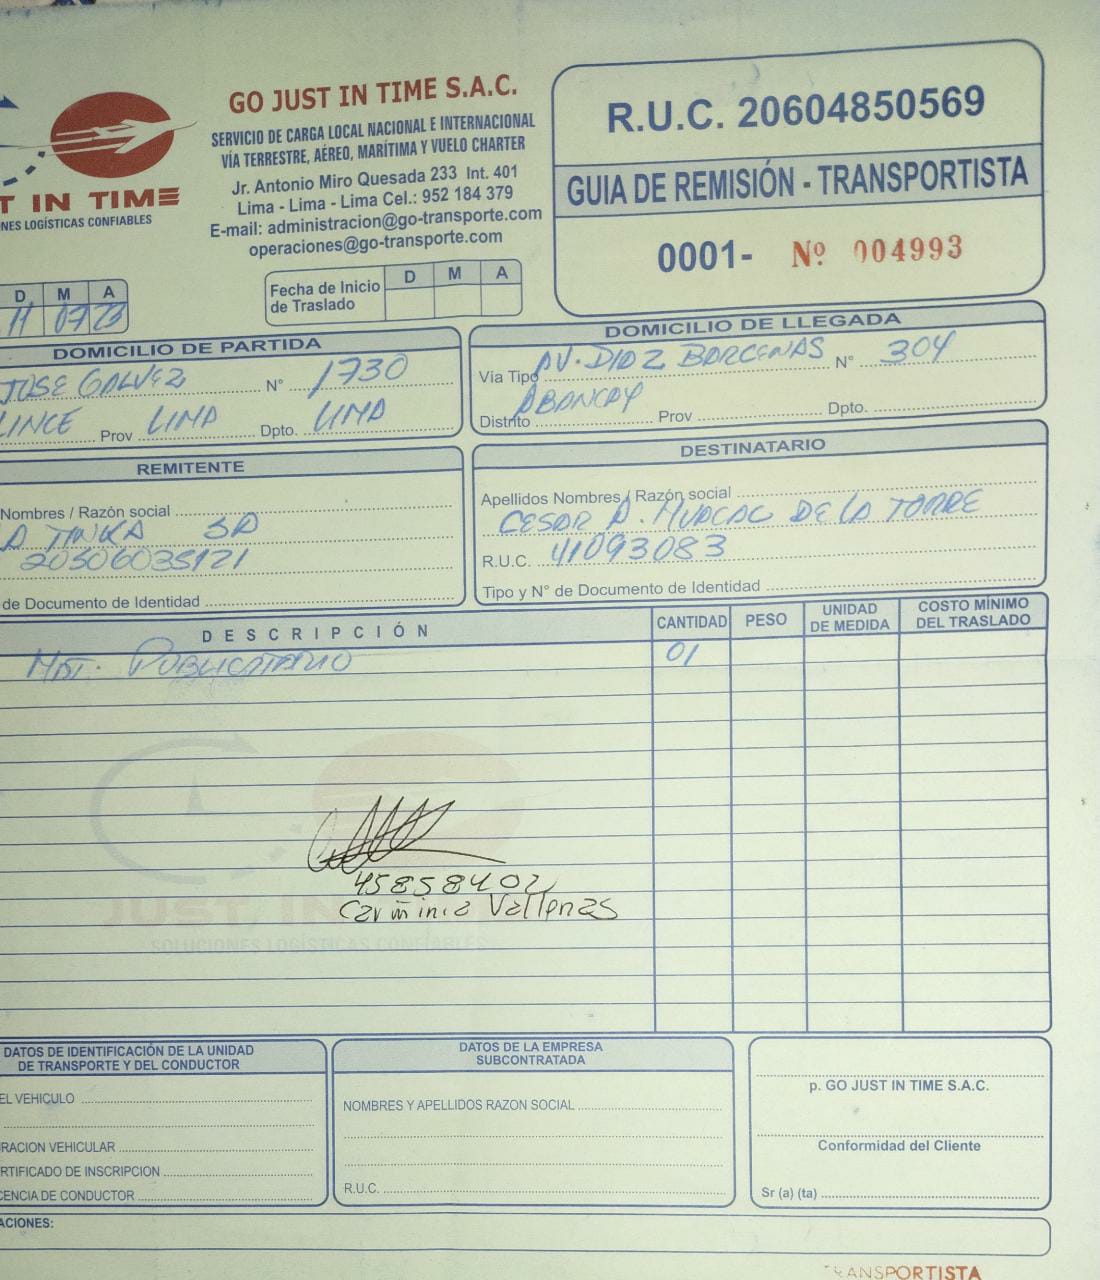 GO JUST IN TIME S.A.C.
SERVICIO DE CARGA LOCAL NACIONAL E INTERNACIONAL
VÍA TERRESTRE, AÉREO, MARÍTIMA Y VUELO CHARTER
Jr. Antonio Miro Quesada 233 Int. 401
Lima - Lima - Lima Cel.: 952 184 379
E-mail: administracion@go-transporte.com
operaciones@go-transporte.com
T IN TIME
NES LOGÍSTICAS CONFIABLES
R.U.C. 20604850569
GUIA DE REMISIÓN - TRANSPORTISTA
0001- Nº 004993
D M A
11 07 23
Fecha de Inicio de Traslado D M A
DOMICILIO DE PARTIDA
JOSE GALVEZ N° 1730
LINCE Prov LIMA Dpto. LIMA
DOMICILIO DE LLEGADA
Vía Tipo AV. DIAZ BARCENAS N° 304
Distrito ABANCAY Prov Dpto.
REMITENTE
Nombres / Razón social
LA TINKA SA
20506035121
de Documento de Identidad
DESTINATARIO
Apellidos Nombres / Razón social
CESAR A. HUACAC DE LA TORRE
R.U.C. 41093083
Tipo y N° de Documento de Identidad
DESCRIPCIÓN CANTIDAD PESO UNIDAD DE MEDIDA COSTO MÍNIMO DEL TRASLADO
MAT. PUBLICITARIO 01
45858402
Carminia Vallenas
JUST IN
SOLUCIONES LOGÍSTICAS CONFIABLES
DATOS DE IDENTIFICACIÓN DE LA UNIDAD
DE TRANSPORTE Y DEL CONDUCTOR
EL VEHICULO
RACION VEHICULAR
RTIFICADO DE INSCRIPCION
CENCIA DE CONDUCTOR
DATOS DE LA EMPRESA
SUBCONTRATADA
NOMBRES Y APELLIDOS RAZON SOCIAL
R.U.C.
p. GO JUST IN TIME S.A.C.
Conformidad del Cliente
Sr (a) (ta)
ACIONES:
TRANSPORTISTA